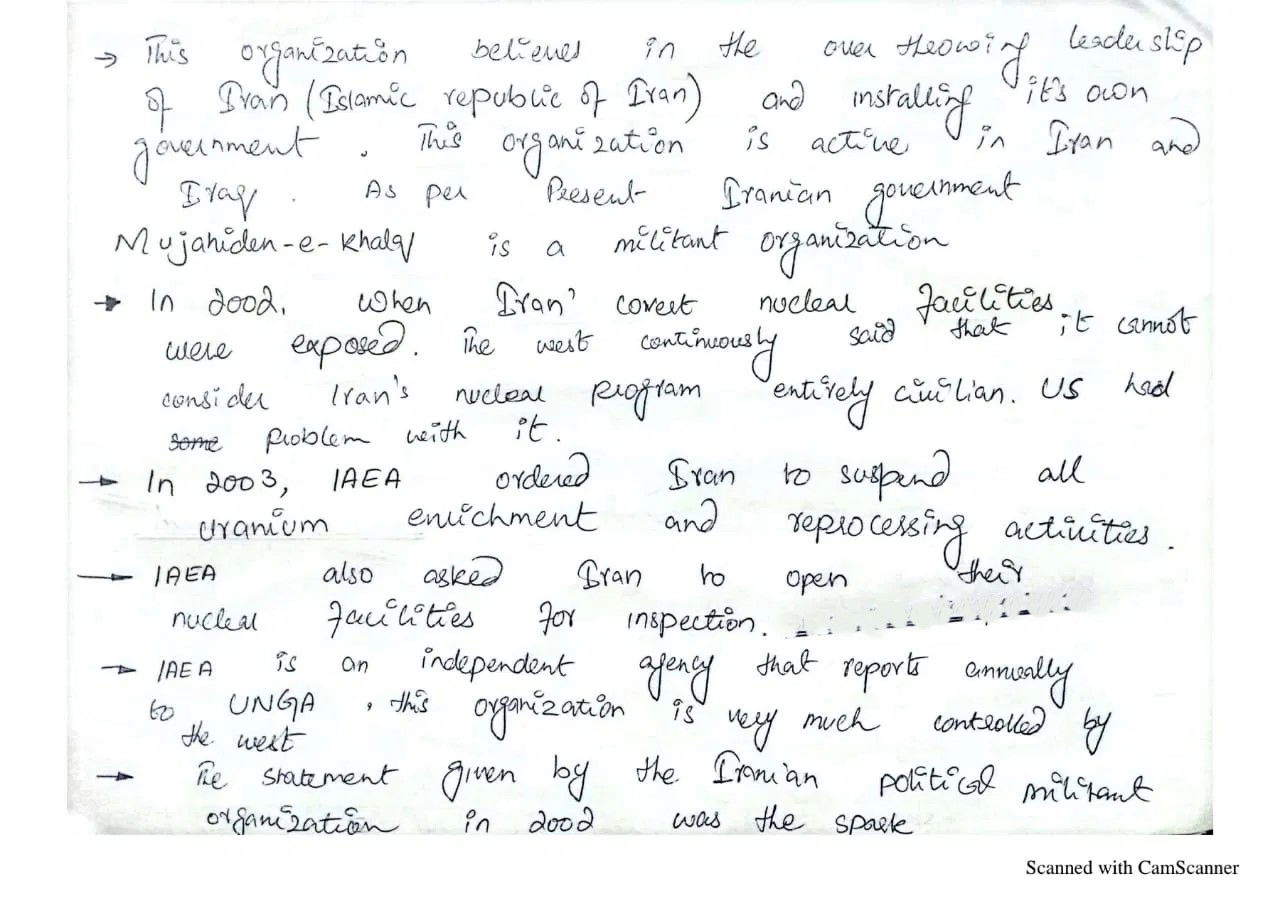 → This organization believes in the over theowing leadership
of Iran (Islamic republic of Iran) and installing it's own
government. This organization is active in Iran and
Iraq. As per Present Iranian government
Mujahiden-e-khalq is a militant organization
→ In 2002, when Iran' covert nuclear facilities
were exposed. The west continuously said that it cannot
consider Iran's nuclear program entirely civilian. US had
some problem with it.
→ In 2003, IAEA ordered Iran to suspend all
uranium enrichment and reprocessing activities.
→ IAEA also asked Iran to open their
nuclear facilities for inspection.
→ IAEA is an independent agency that reports annually
to UNGA, this organization is very much controlled by
the west
→ The statement given by the Iranian political militant
organization in 2002 was the spark
Scanned with CamScanner